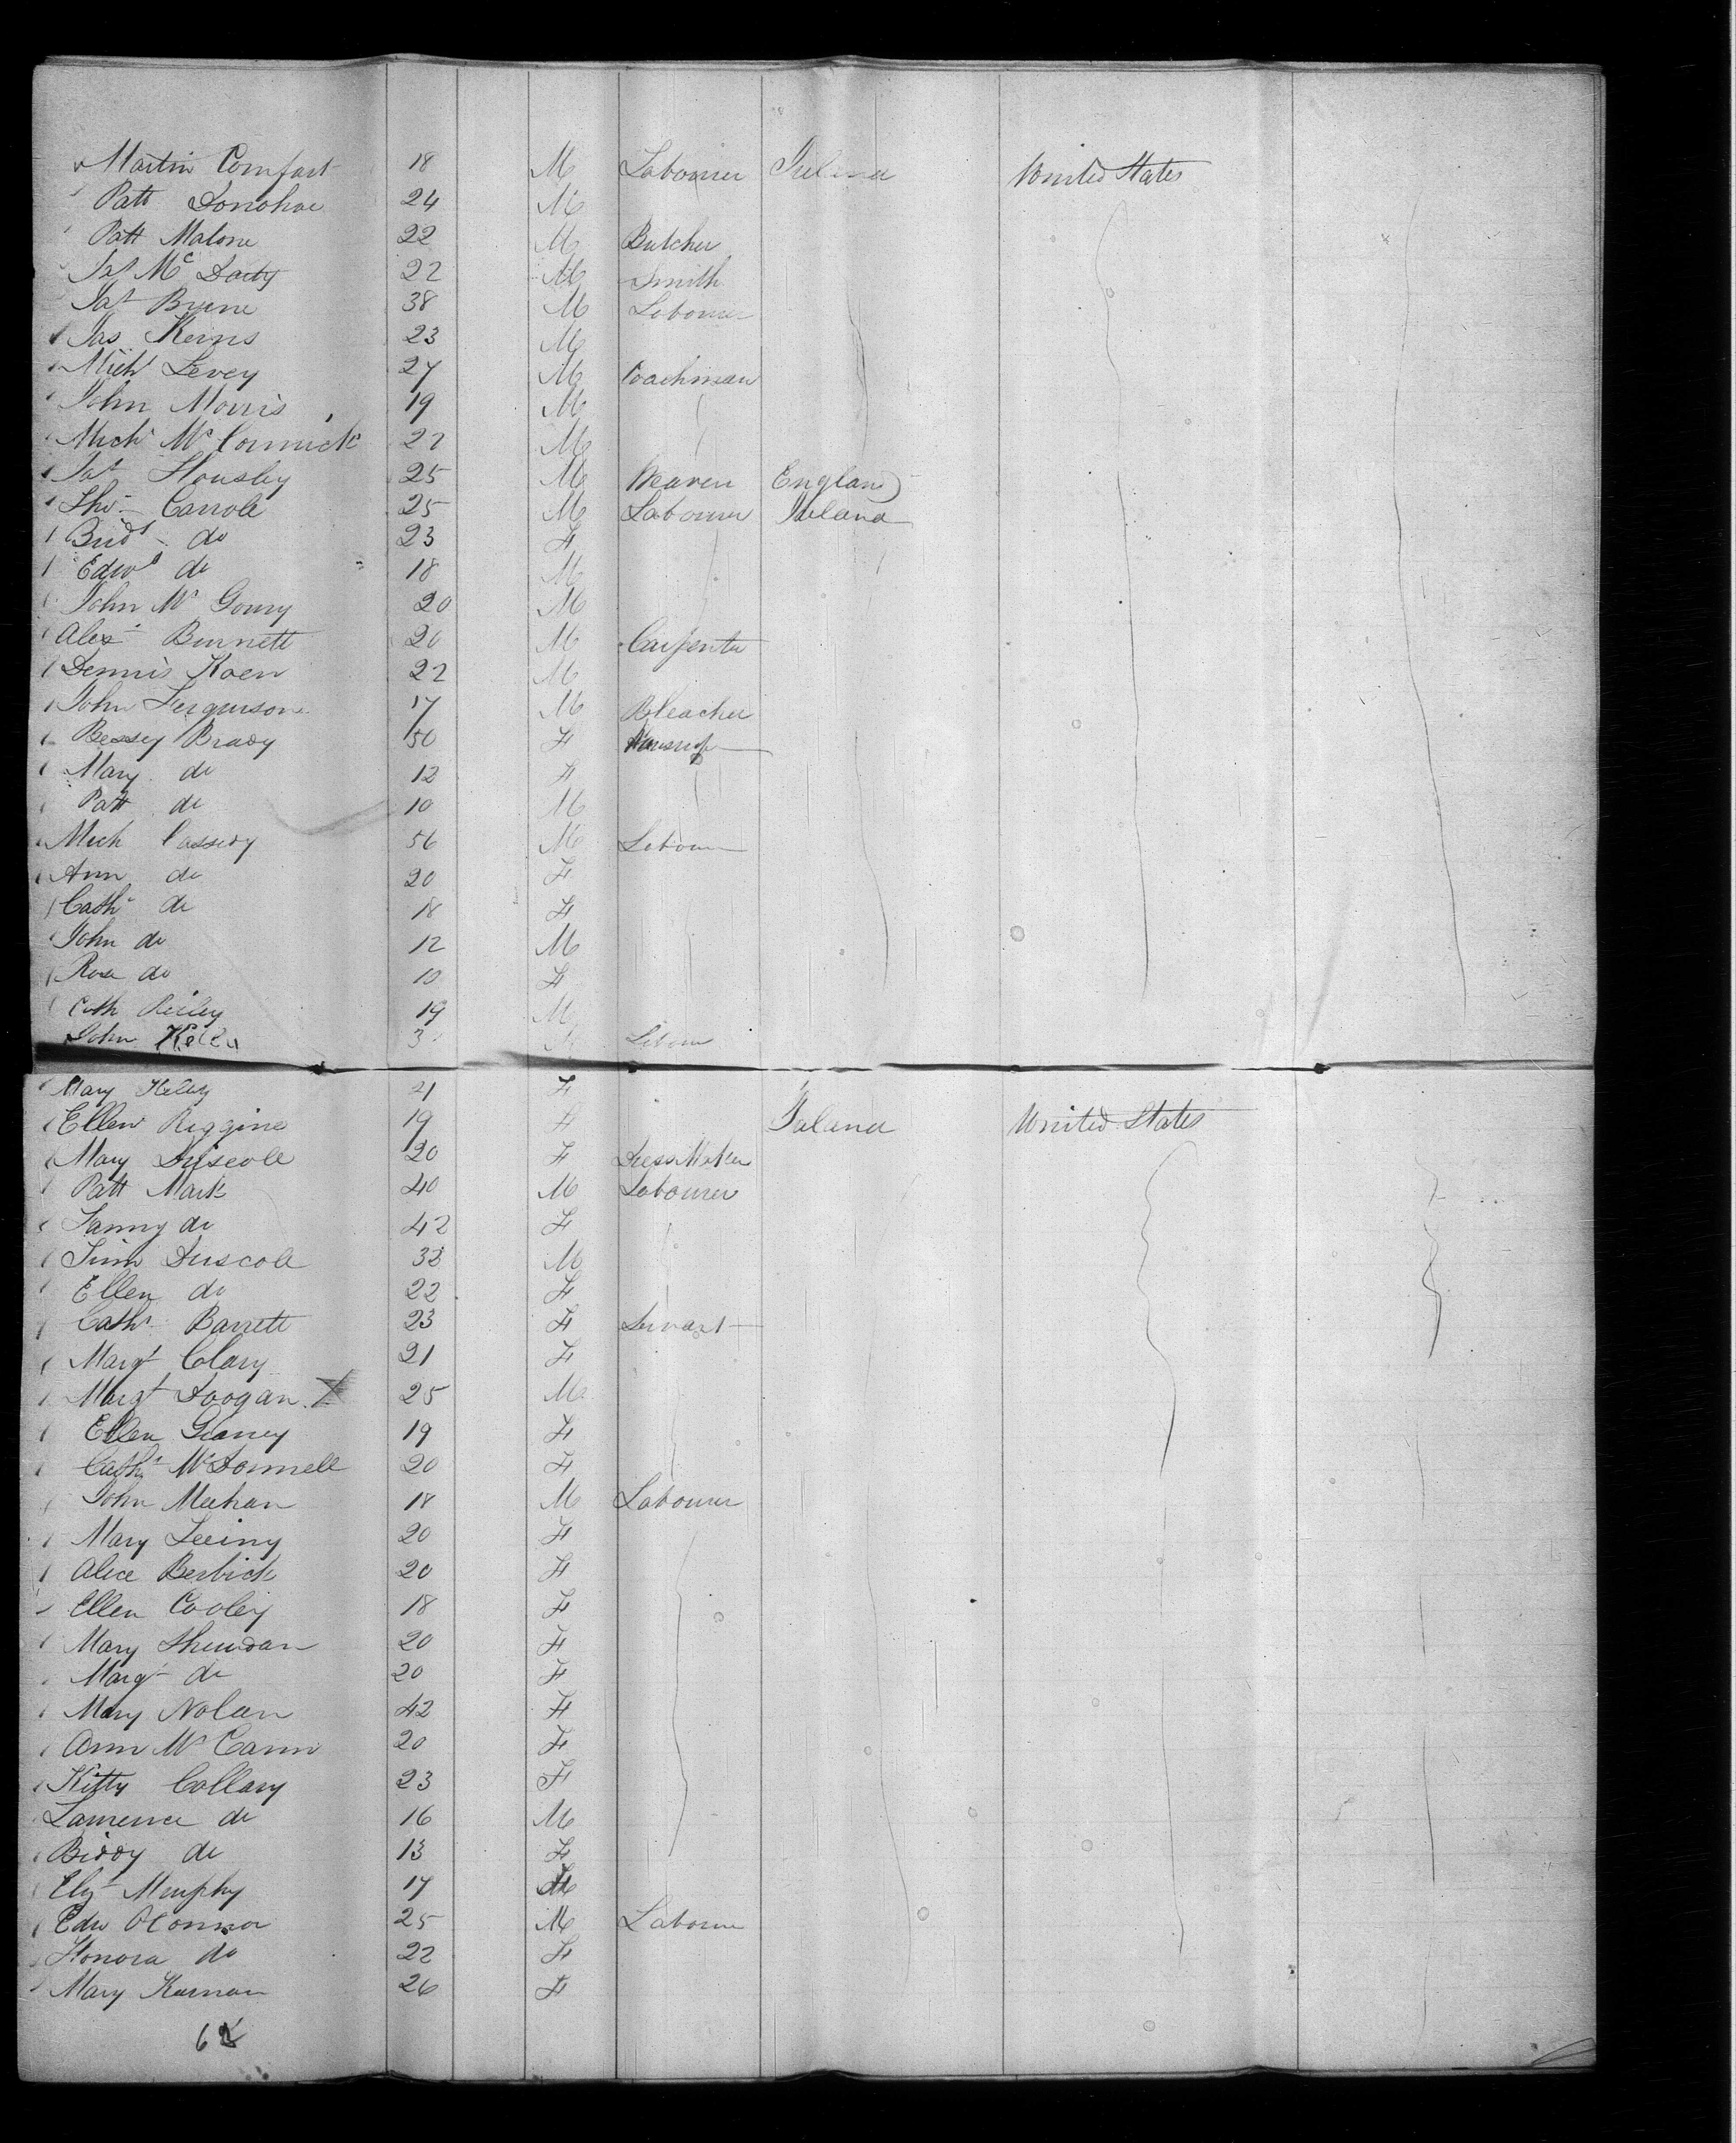 Martin Comfort 18 M Labourer Ireland United States
Patt Donohoe 24 M
Patt Malone 22 M Butcher
Jas Mc Darby 22 M Smith
Pat Brene 38 M Labourer
Jas Kerns 23 M
Michl Levey 27 M Coachman
John Morris 19 M
Michl Mc Cormick 22 M
Jas Housley 25 M Weaver England
Thos Carrole 25 M Labourer Ireland
Bridt do 23 F
Edwd do 18 M
John Mc Goury 20 M
Alexr Burnett 20 M Carpenter
Dennis Koen 22 M
John Fergurson 17 M Bleacher
Bessey Brady 50 F
Mary do 12 F
Patt do 10 M
Mich Cassedy 56 M Labourer
Ann do 20 F
Cathe do 18 F
John do 12 M
Rose do 10 F
Cath Reiley 19 M
John Kelly 3 M Labour
Mary Kelly 21 F
Ellen Riggins 19 F Ireland United States
Mary Driscole 20 F Dress Maker
Patt Mark 40 M Labourer
Fanny do 42 F
Tim Driscole 32 M
Ellen do 22 F
Cathe Barrett 23 F Servant
Margt Clary 21 F
Margt Doogan X 25 M
Ellen Glaney 19 F
Cathe McDonnell 20 F
John Meehan 18 M Labourer
Mary Leeiny 20 F
Alice Berbick 20 F
Ellen Cooley 18 F
Mary Sheridan 20 F
Margt do 20 F
Mary Nolan 42 F
Ann Mc Cann 20 F
Kitty Collary 23 F
Lawrence do 16 M
Biddy do 13 F
Elizt Murphy 17
Edw OConnor 25 M Labourer
Honora do 22 F
Mary Kernan 26 F
62